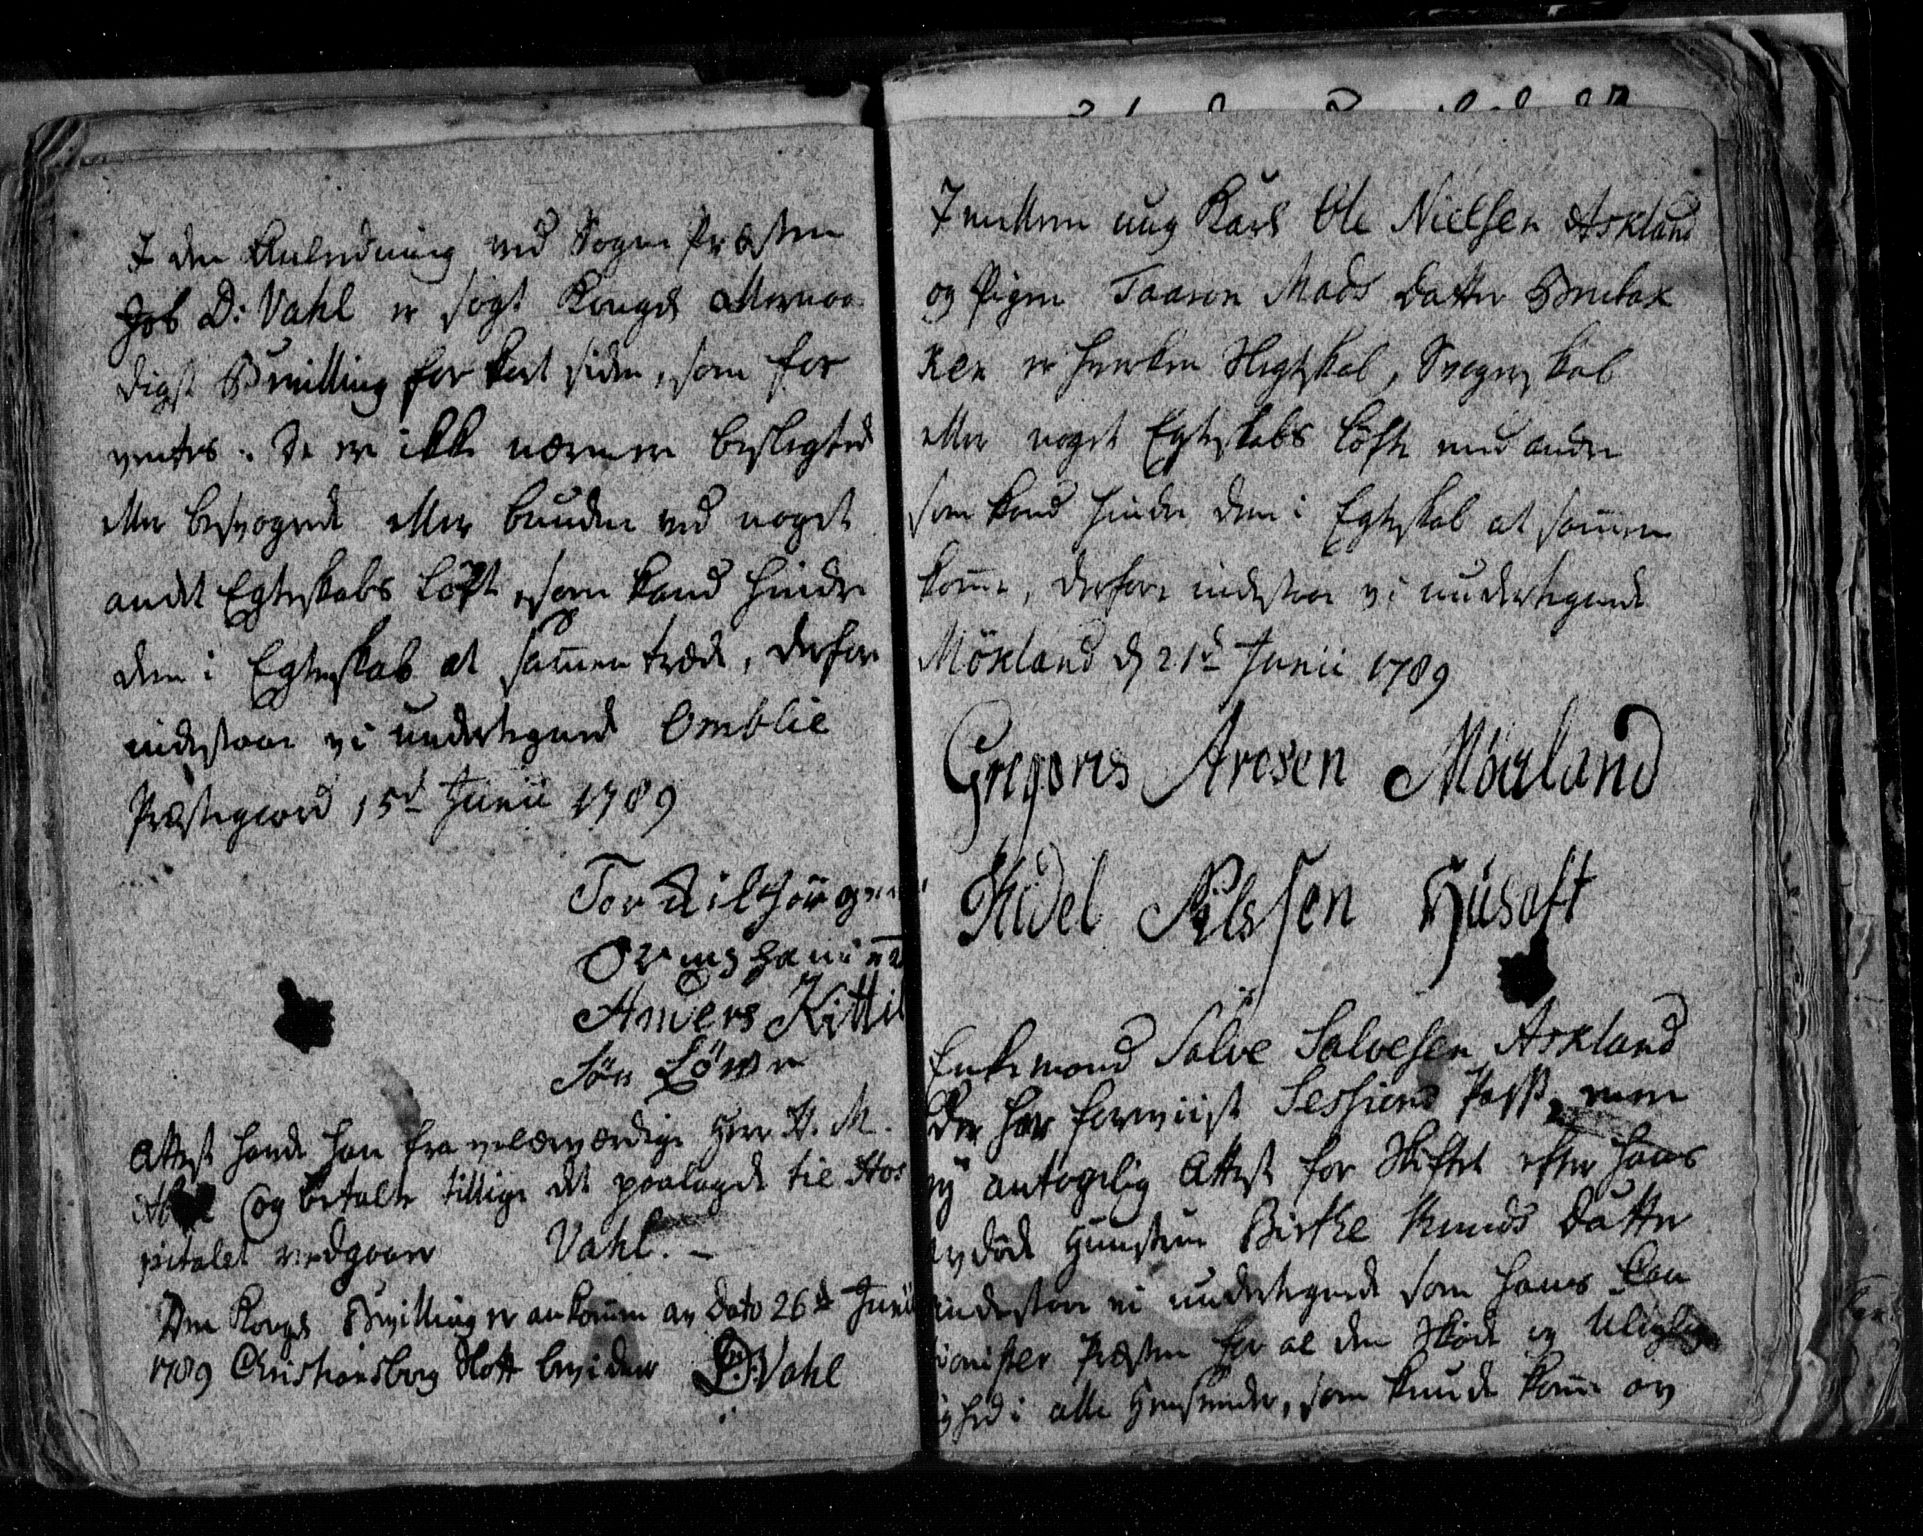 I den Anledning ved Sogne Præsten
Job D: Vahl er søgt Konges Allernaa-
digst Bevilling for kort siden, som for
ventes. De er ikke nærmere beslegted
eller besvogrede eller bunden ved noget
andet Egteskabs Løft, som kand hindre
dem i Egteskab at sam̄en træde, derfor
indestaar vi undertegnede Omblie
Præstegaard 15d Junii 1789
Tor Kilt Jörgen
Anders Kittil
Søn
Attest hande han fra velærværdige Herr H. M.
og betalte tillige det paalagde til Hos
pitalet vedgaaer Vahl. -
Den Kongs Bevilling er ankom̄en av Dato 26d Junii
1789 Christiansborg Slott bevidner J:D:Vahl
Imellem ung Karl Ole Nielsen Askland
og Pigen Taaron Mads Datter Birkelak
ken er hverken Slegtskab, Svogerskab
eller noget Egteskabs Løfte med andre
som kand hindre dem i Egteskab at sam̄en
kom̄e, derfore indestaar vi undertegnede
Möxland d 21d Junii 1789
Gregorus Aresen Möxland
Kidel Nilssen Husoft
Enkemand Salve Salvesen Askland
der har forreviist Sessions Pass, men
ey antagelig Attest for Skiftet efter hans
avdöde Hunstrue Birthe Knuds Datter
indestaar vi undertegnede som hans Cau
tionister Præsten for al den Skade og Uleylig
hed i alle Henseender, som kunde kom̄e av